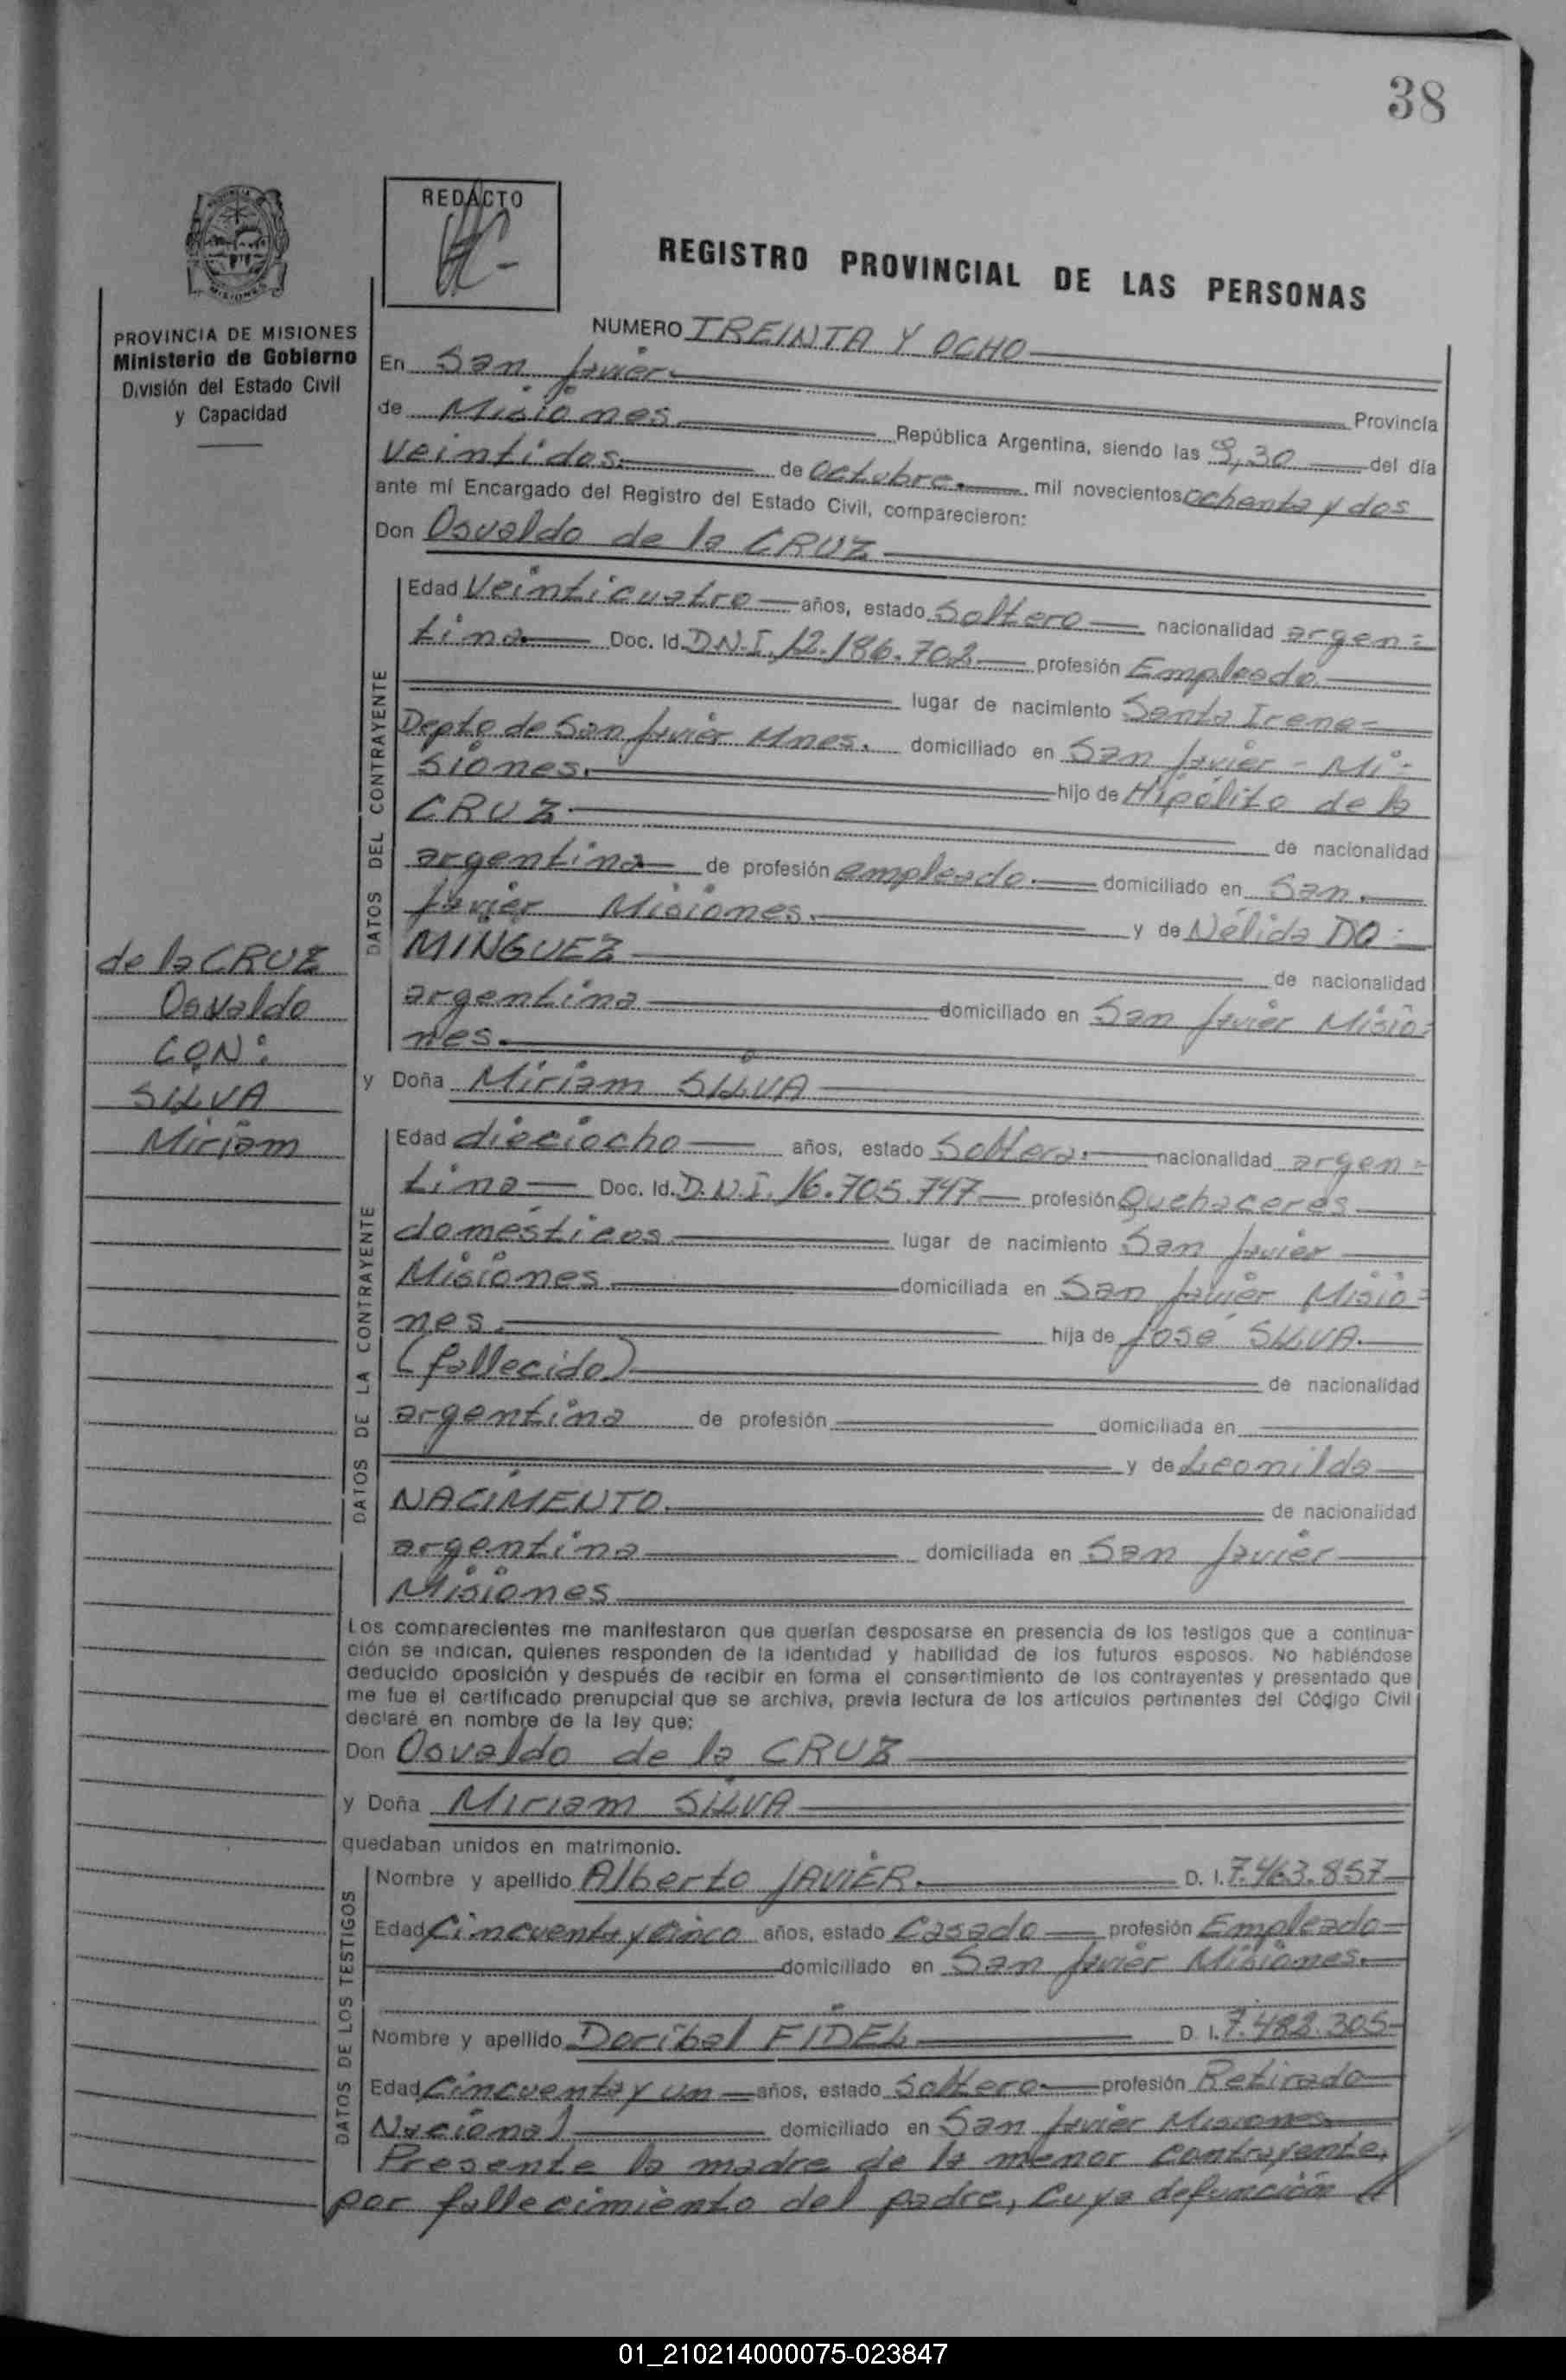 38
REDACTO
REGISTRO PROVINCIAL DE LAS PERSONAS
PROVINCIA DE MISIONES
Ministerio de Gobierno
División del Estado Civil
y Capacidad
NUMERO TREINTA Y OCHO
En San Javier Provincia
de Misiones República Argentina, siendo las 9,30 del día
veintidos de octubre mil novecientos ochenta y dos
ante mí Encargado del Registro del Estado Civil, comparecieron:
Don Osvaldo de la CRUZ
DATOS DEL CONTRAYENTE
Edad Veinticuatro años, estado Soltero nacionalidad argen=
tina Doc. Id. D.N.I. 12.186.702 profesión Empleado
lugar de nacimiento Santa Irene
Depto de San Javier Mnes. domiciliado en San Javier - Mi=
siones. hijo de Hipólito de la
CRUZ de nacionalidad
argentina de profesión empleado. domiciliado en San
Javier Misiones. y de Nélida DO=
MINGUEZ de nacionalidad
argentina domiciliado en San Javier Misio=
nes.
de la CRUZ
Osvaldo
CON:
SILVA
Miriam
y Doña Miriam SILVA
DATOS DE LA CONTRAYENTE
Edad dieciocho años, estado Soltera. nacionalidad argen=
tina Doc. Id. D.N.I. 16.705.747 profesión Quehaceres
domésticos lugar de nacimiento San Javier
Misiones domiciliada en San Javier Misio=
nes. hija de José SILVA.
(fallecido) de nacionalidad
argentina de profesión domiciliada en
y de Leonilda
NACIMENTO. de nacionalidad
argentina domiciliada en San Javier
Misiones
Los comparecientes me manifestaron que querían desposarse en presencia de los testigos que a continua-
ción se indican, quienes responden de la identidad y habilidad de los futuros esposos. No habiéndose
deducido oposición y después de recibir en forma el consentimiento de los contrayentes y presentado que
me fue el certificado prenupcial que se archiva, previa lectura de los artículos pertinentes del Código Civil
declaré en nombre de la ley que:
Don Osvaldo de la CRUZ
y Doña Miriam SILVA
quedaban unidos en matrimonio.
DATOS DE LOS TESTIGOS
Nombre y apellido Alberto JAVIER. D. I. 7.463.857
Edad Cincuenta y cinco años, estado Casado profesión Empleado
domiciliado en San Javier Misiones.
Nombre y apellido Doribal FIDEL D. I. 7.482.305
Edad Cincuenta y un años, estado Soltero profesión Retirado
Nacional domiciliado en San Javier Misiones
Presente la madre de la menor contrayente,
por fallecimiento del padre, cuya defunción
01_210214000075-023847